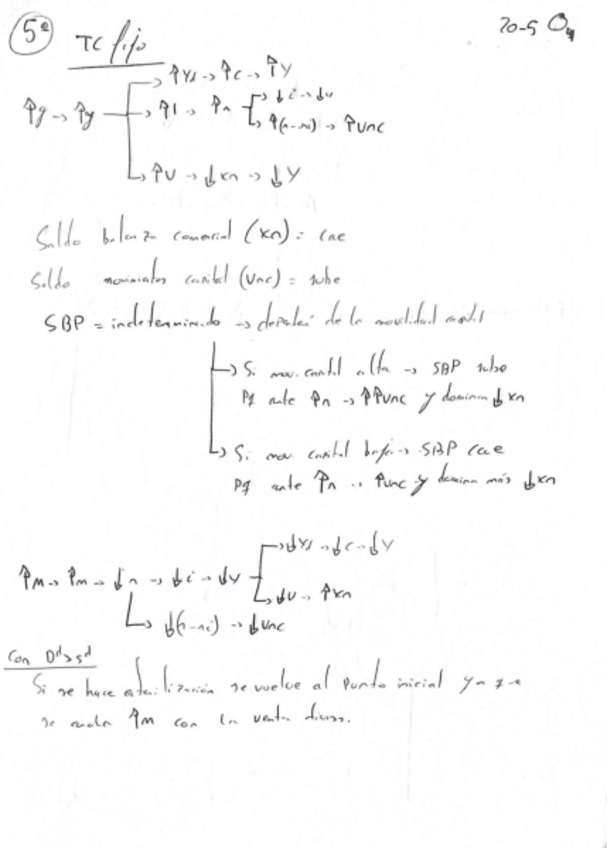 5º TC fijo 20-5
↑Yd → ↑C → ↑Y
↑g → ↑y → ↑l → ↑n → ↓i → ↓y
↑(n-ni) → ↑VNC
↑U → ↓xn → ↓Y
Saldo balanza comercial (xn) = cae
Saldo movimientos capital (VNC) = sube
SBP = indeterminado → de la movilidad capital
→ Si mov. capital alta → SBP sube
Pq ante ↑n → ↑↑VNC y domina ↓xn
→ Si mov capital baja → SBP cae
Pq ante ↑n → ↑VNC y domina más ↓xn
→ ↓Yd → ↓C → ↓Y
↑M → ↑m → ↓n → ↓i → ↓y → ↓U → ↑xn
→ ↓(n-ni) → ↓VNC
Con Dd>Sd
Si se hace esterilización se vuelve al punto inicial ya que
se anula ↑M con la venta divisas.